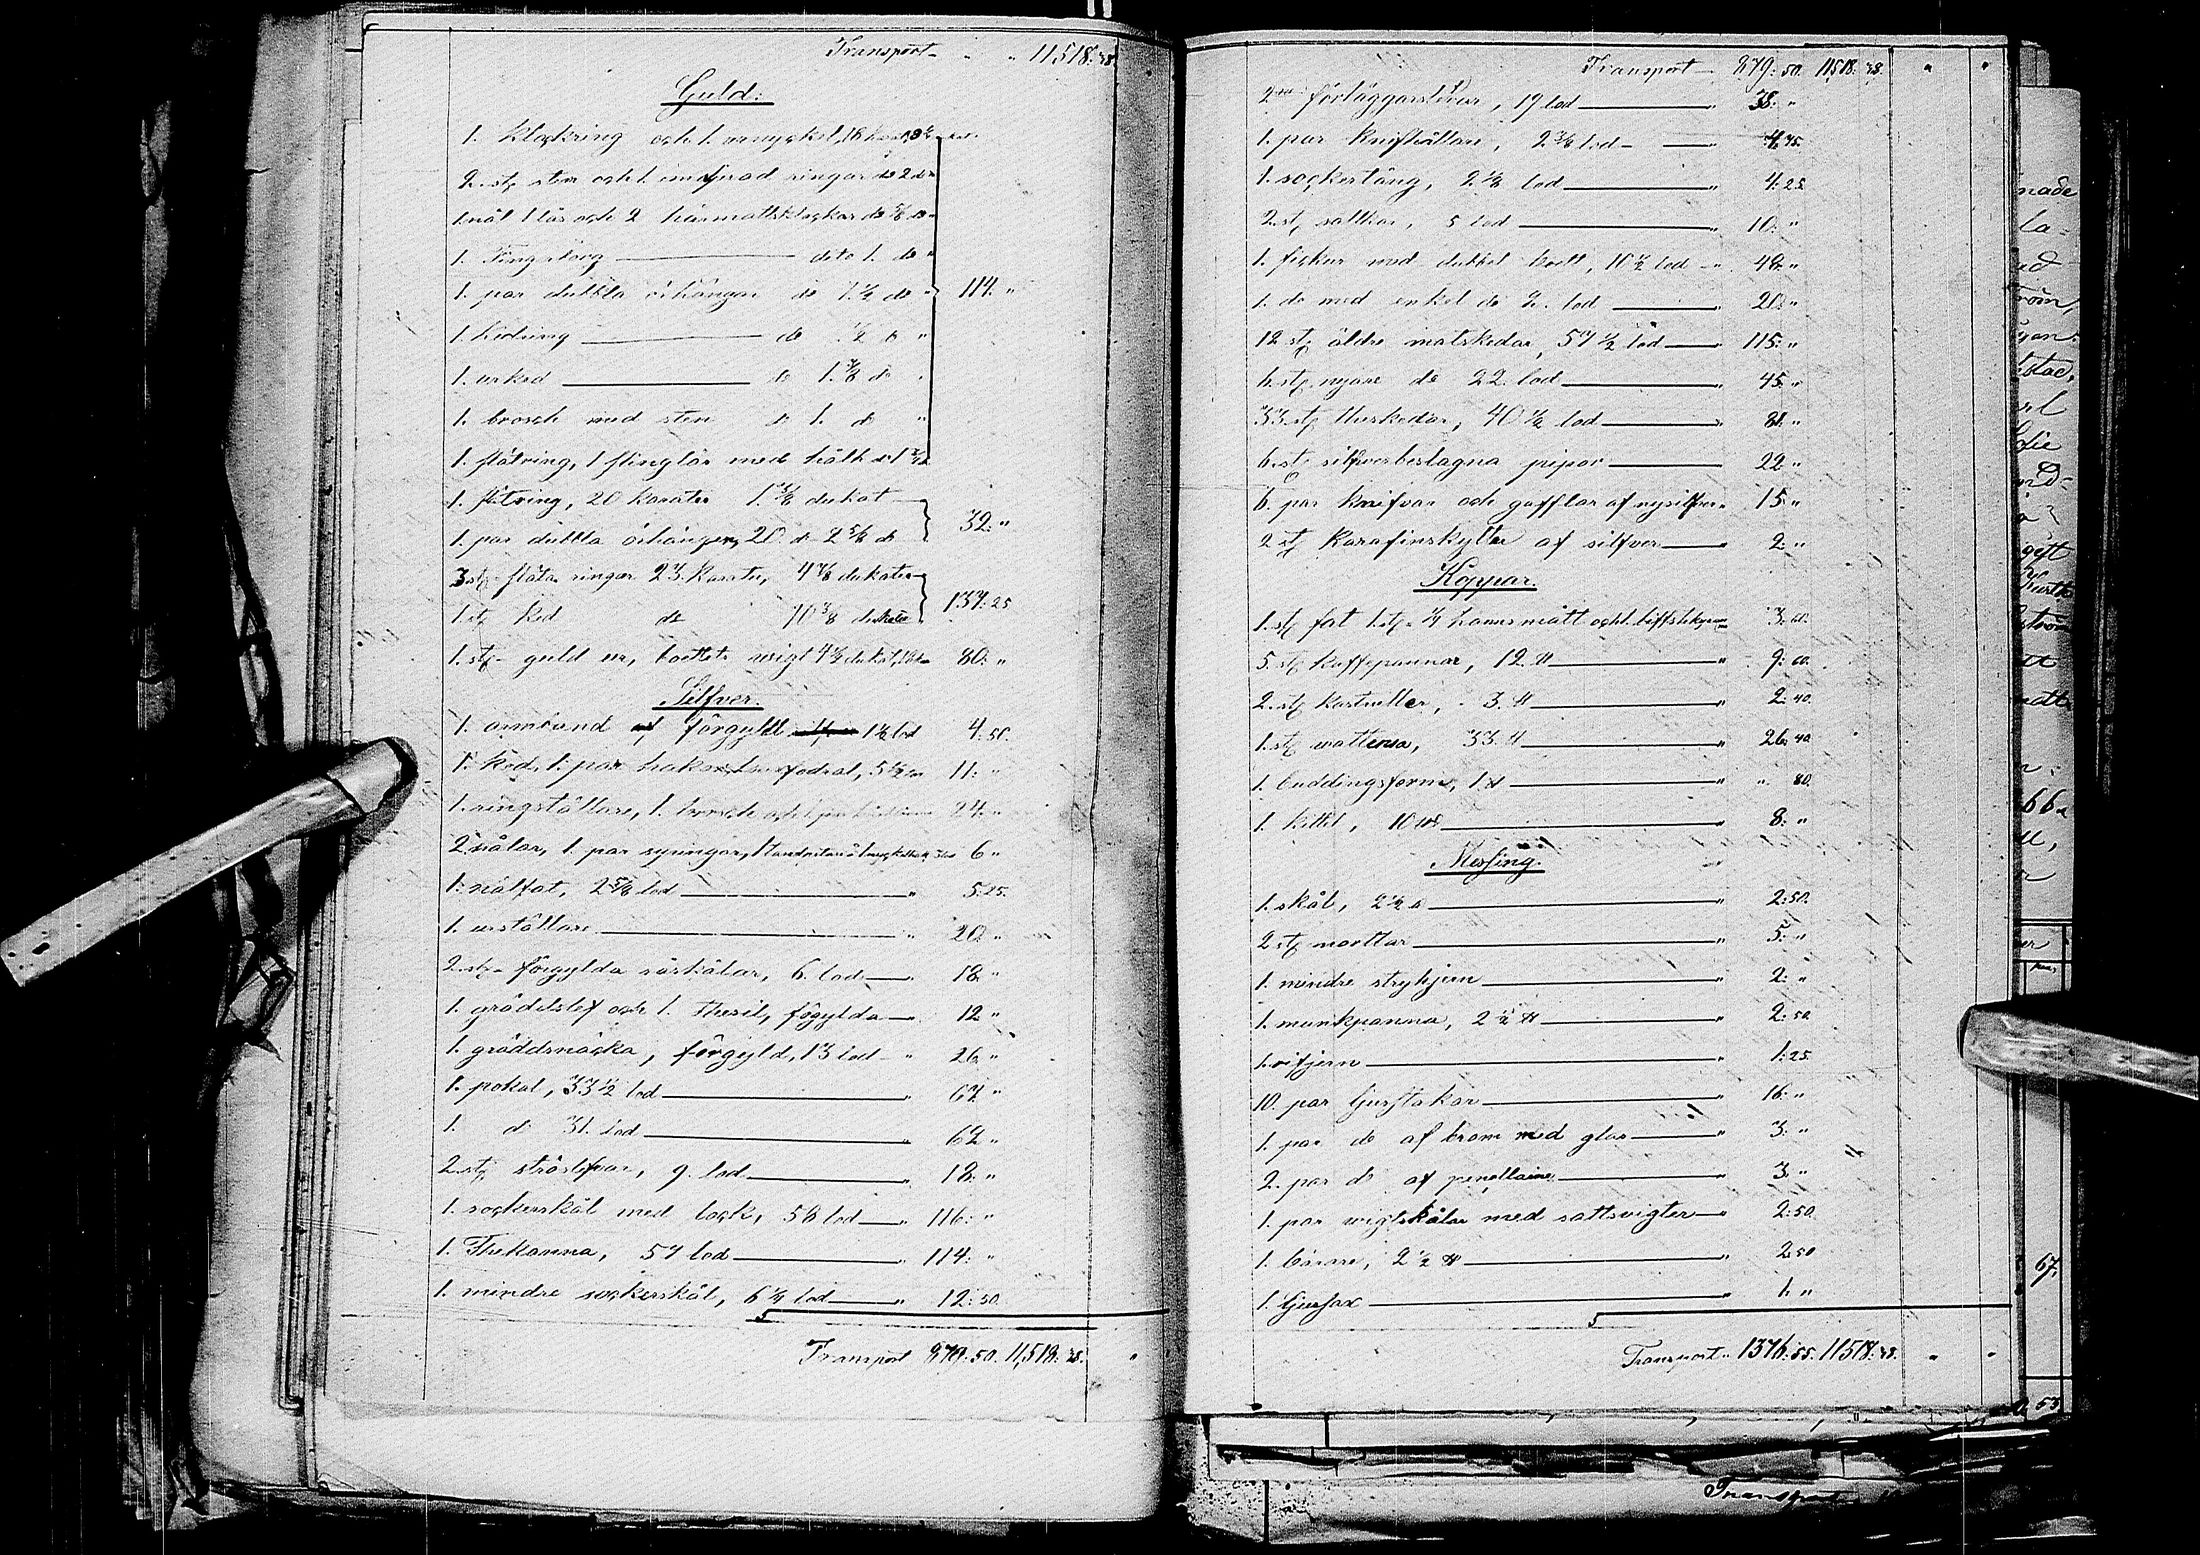 Transport 11,518: 38.
Guld:
1. klockring och 1. urnyckel, 18 karat, 3 1/2 duk.
2. stz sten och 1. ringar do 2 do
1. nål 1 lås och 2 klockor do 5/8 do
1. Fingerborg dito 1. do "
1. par dubbla örhängen do 1. 1/4 do " 114. "
1. hårring do 1/2 d "
1. urked do 1. 3/8 do
1. brosch med sten do 1. d "
1. slätring, 1 med do 1
1. slätring, 20 karater 1. 3/8 dukat
1. par dubbla örhängen, 20 do 2 5/8 do 32: "
3 stz släta ringar 23. karater, 4 7/8 dukater
1. stz ked do 10 3/8 dukater 137: 25
1. stz guld ur, boettets wigt 4 1/2 dukat, 18 k 80: "
Silfver.
1. armband förgyldt 1 1/2 lod 4: 50.
1. Ked, 1. par fodral, 5 1/2 lod 11: "
1. ringställare, 1. brosch och 1. par 24: "
2 nålar, 1. par syringar, 1 6 "
1. nålfat, 2 5/8 lod " 5: 25.
1. urställare " 20 "
2. stz förgylda såskålar, 6. lod " 18 "
1. gräddslef och 1. Thesil, förgylda " 12 "
1. gräddsnäcka, förgyld, 13 lod " 26 "
1. pokal, 33 1/2 lod " 67. "
1. do 31. lod " 62 "
2. stz ströslefvar, 9. lod " 18: "
1. sockerskål med lock, 58 lod " 116: "
1. Thekanna, 57 lod " 114: "
1. mindre sockerskål, 6 1/4 lod " 12: 50.
Transport 879: 50. 11,518: 38. "
Transport 879: 50. 11,518: 38. " "
2 stz förläggarslefvar, 19 lod " 38: "
1. par knifhållare, 2 3/8 lod " 4: 75.
1. sockertång, 2 1/8 lod " 4: 25
2. stz saltkar, 5 lod " 10: "
1. fickur med dubbel boett, 10 1/2 lod " 48 "
1. do med enkel do 7. lod " 20 "
12 stz äldre matskedar, 57 1/2 lod " 115: "
6. stz nyare do 22. lod " 45: "
33. stz theskedar, 40 1/2 lod " 81: "
6. stz silfverbeslagna pipor " 22 "
6. par knifvar och gafflar af nysilfver " 15 "
2 stz karafinskyltar af silfver " 2: "
Koppar.
1. stz fat 1. stz 1/4 kanns mått och 1. 3: 60.
5. stz kaffepannor, 12. ℔ " 9: 60.
2. stz kastruller, 3. ℔ " 2: 40.
1. stz 33. ℔ " 26: 40
1. buddingsform, 1 ℔ " " 80.
1. kittel, 10 ℔ " 8: "
Messing.
1. skål, 2 1/2 ℔ " 2: 50.
2 stz mortlar " 5: "
1. mindre strykjern " 2: "
1. munkpanna, 2 1/2 ℔ " 2: 50
1. rifjern " 1: 25.
10. par ljusstakar " 16: "
1. par do af brons med glas " 3: "
2. par do af porcellaine " 3 "
1. par wigtskålar med sattsvigter " 2: 50.
1. bärare, 2 1/2 ℔ " 2: 50
1. ljussax 1. "
Transport 1376: 55. 11518: 38. " "
67.
53
Transport